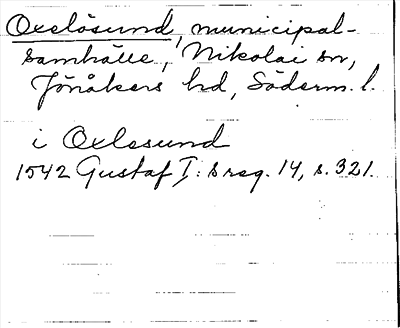 Oxelösund, municipal-
samhälle, Nikolai sn,
Jönåkers hd, Söderm. l.
i Oxlesund
1542 Gustaf I:s reg. 14, s. 321.